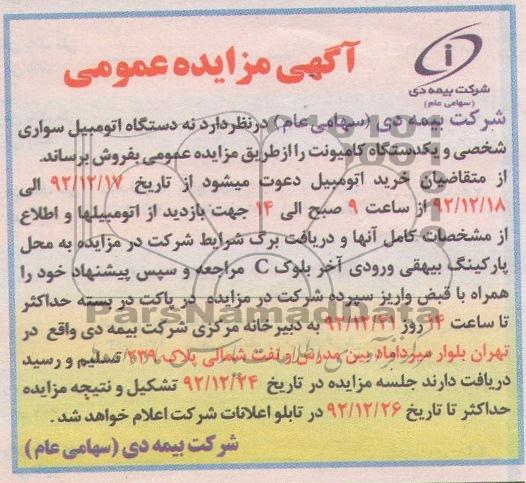 آگهی مزایده عمومی
شرکت بیمه دی
(سهامی عام)
شرکت بیمه دی (سهامی عام) درنظردارد نه دستگاه اتومبیل سواری
شخصی و یکدستگاه کامیونت را ازطریق مزایده عمومی بفروش برساند.
از متقاضیان خرید اتومبیل دعوت میشود از تاریخ ۹۲/۱۲/۱۷ الی
۹۲/۱۲/۱۸ از ساعت ۹ صبح الی ۱۴ جهت بازدید از اتومبیلها و اطلاع
از مشخصات کامل آنها و دریافت برگ شرایط شرکت در مزایده به محل
پارکینگ بیهقی ورودی آخر بلوک C مراجعه و سپس پیشنهاد خود را
همراه با قبض واریز سپرده شرکت در مزایده در پاکت در بسته حداکثر
تا ساعت ۱۴ روز ۹۲/۱۲/۲۱ به دبیرخانه مرکزی شرکت بیمه دی واقع در
تهران بلوار میرداماد بین مدرس و نفت شمالی پلاک ۲۳۹ تسلیم و رسید
دریافت دارند جلسه مزایده در تاریخ ۹۲/۱۲/۲۴ تشکیل و نتیجه مزایده
حداکثر تا تاریخ ۹۲/۱۲/۲۶ در تابلو اعلانات شرکت اعلام خواهد شد.
شرکت بیمه دی (سهامی عام)
ParsNamadData